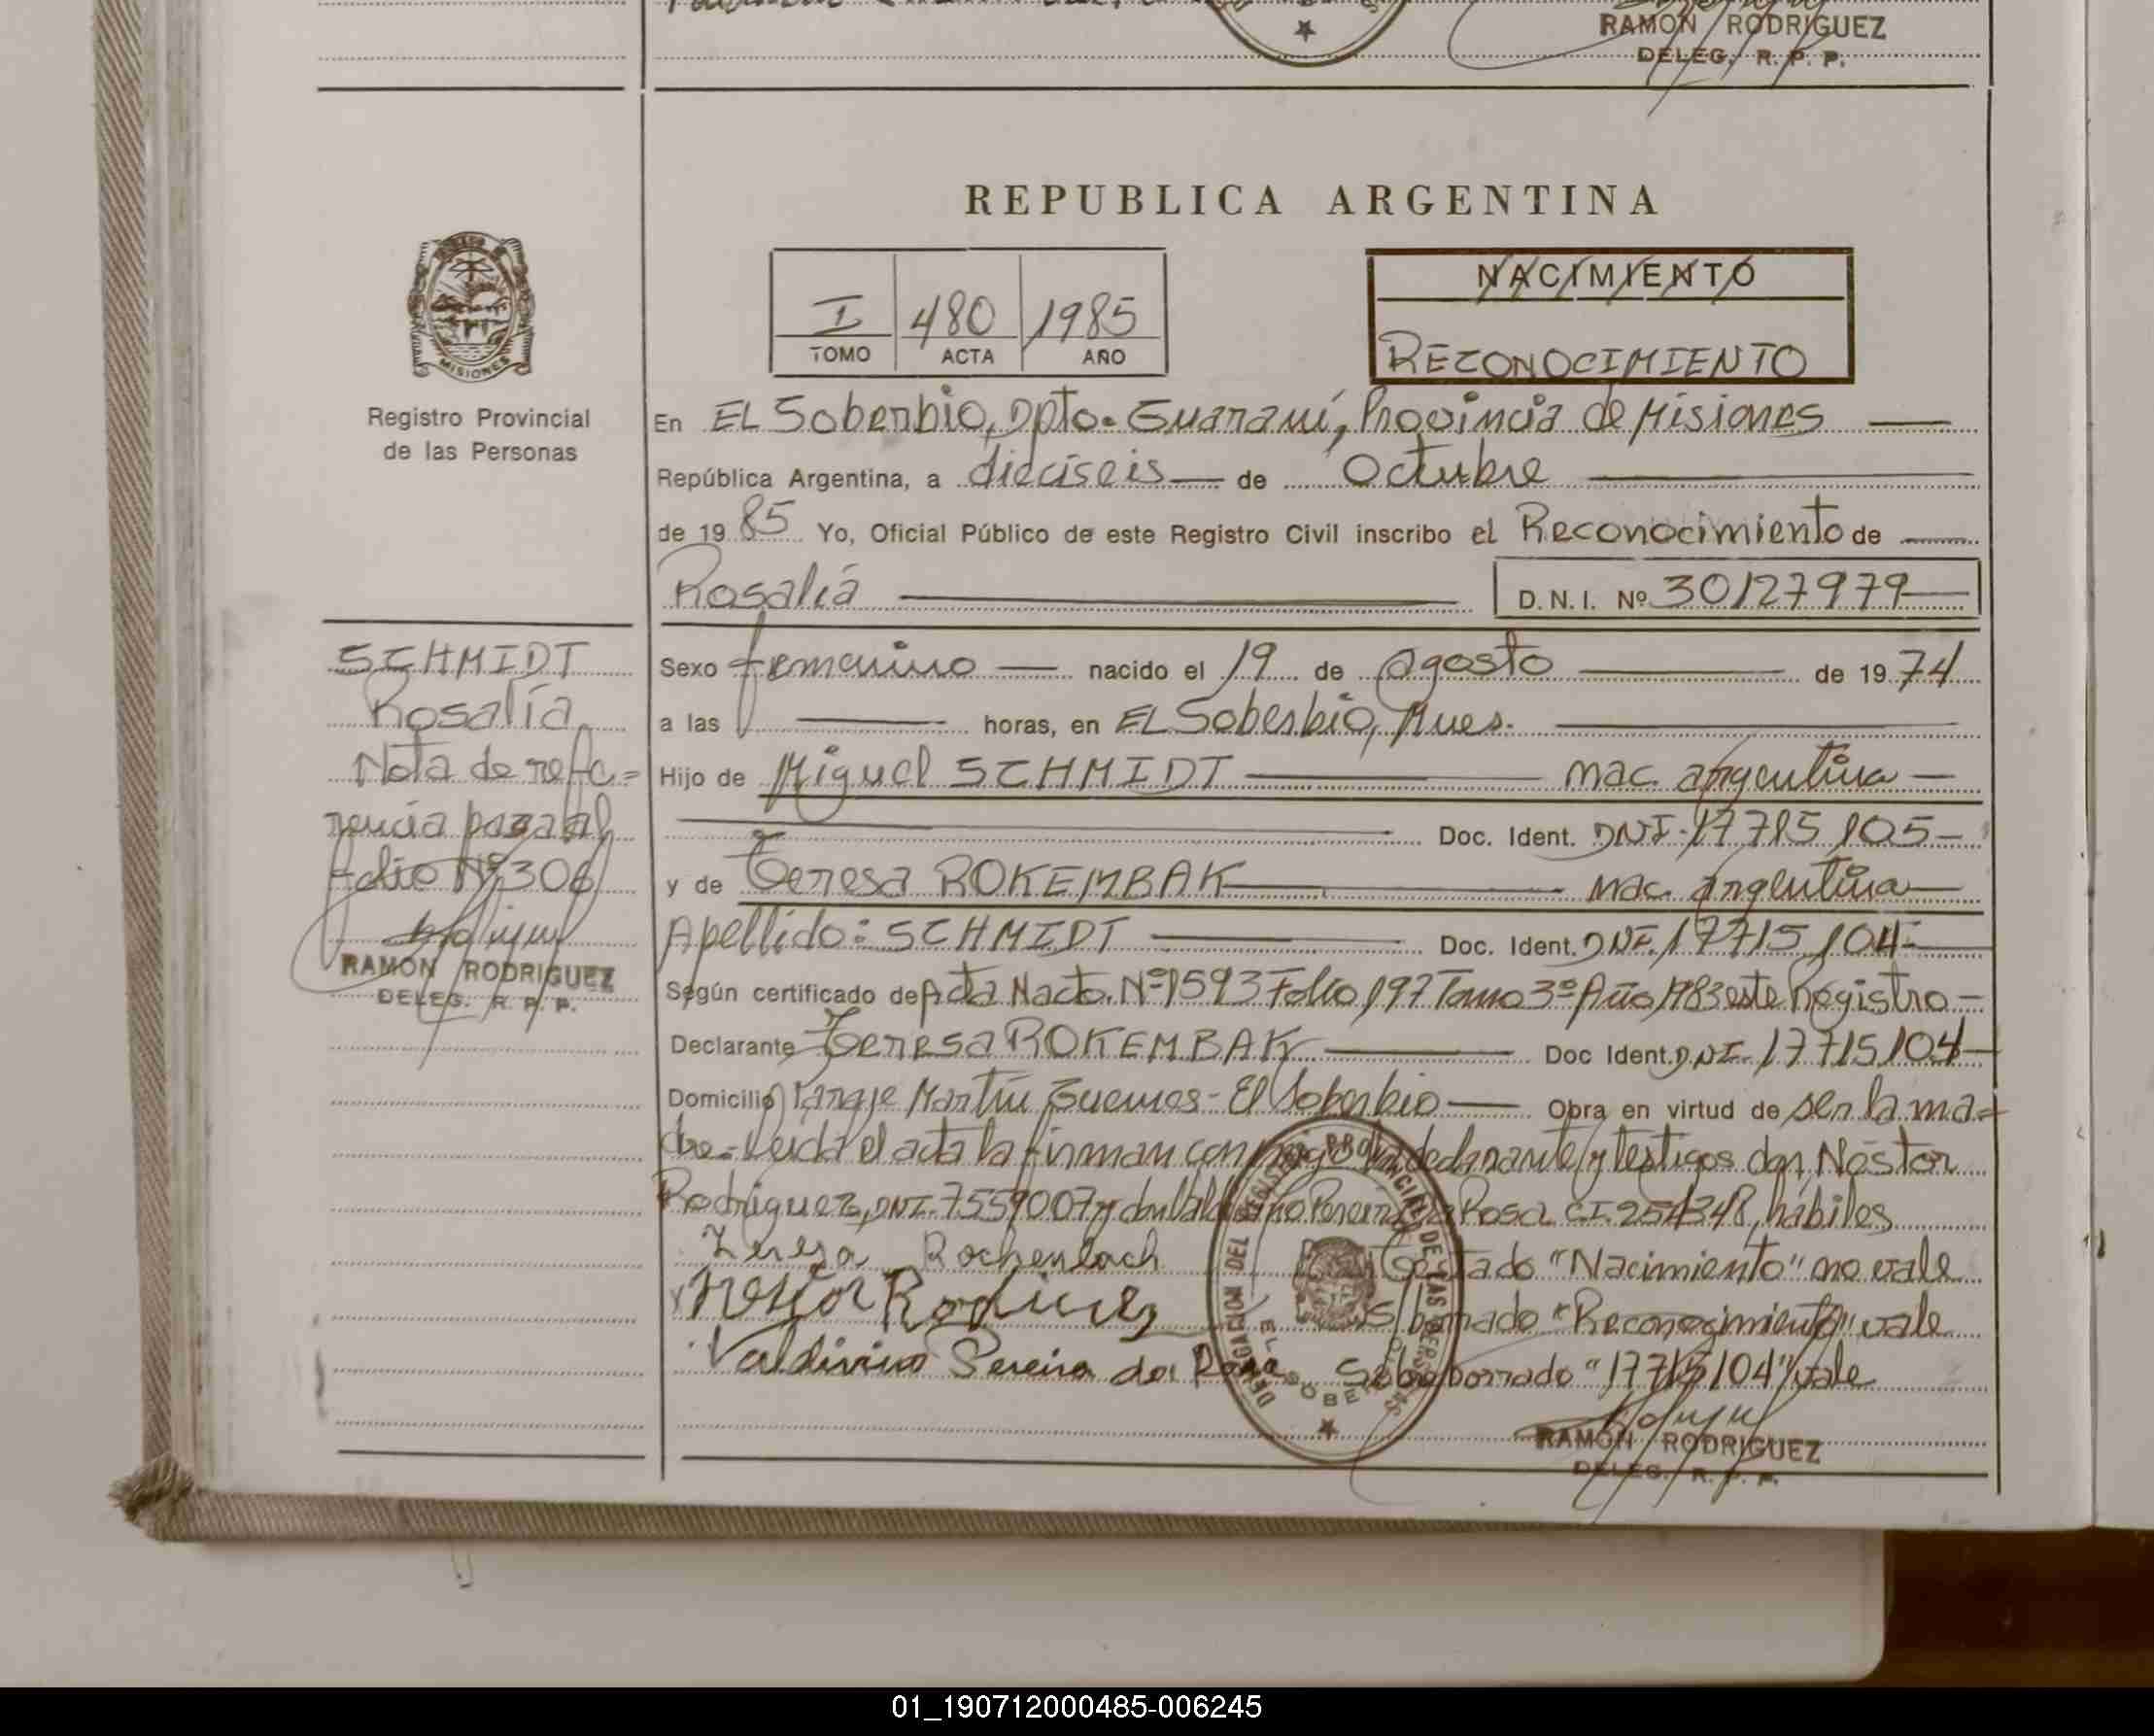 RAMON RODRIGUEZ
DELEG. R. P. P.
REPUBLICA ARGENTINA
MISIONES
Registro Provincial
de las Personas
I 480 1985
TOMO ACTA AÑO
NACIMIENTO
RECONOCIMIENTO
En EL Soberbio, Dpto. Guaraní, Provincia de Misiones
República Argentina, a dieciseis de Octubre
de 1985 Yo, Oficial Público de este Registro Civil inscribo el Reconocimiento de
Rosalia D.N.I. Nº 30127979
Sexo femenino nacido el 19 de agosto de 1974
a las horas, en EL Soberbio, Mnes.
Hijo de Miguel SCHMIDT nac. argentina
Doc. Ident. DNI. 17715105
y de Teresa ROKEMBAK nac. argentina
Apellido: SCHMIDT Doc. Ident. DNI. 17715104
Según certificado de Acta Nacto. Nº 1593 Folio 197 Tomo 3º Año 1983 este Registro
Declarante Teresa ROKEMBAK Doc Ident. DNI. 17715104
Domicilio Paraje Martín Guemes - El Soberbio Obra en virtud de ser la ma=
dre.- Leida el acta la firman conmigo la declarante y testigos don Néstor
Rodriguez, DNI. 7559007 y don Valdivino Pereira da Rosa CI. 254348, hábiles
Teresa Rochenbach
Nestor Rodriguez
Valdivino Pereira da Rosa
Testado "Nacimiento" no vale
S/borrado "Reconocimiento" vale
Sobreborrado "17715104" vale
RAMON RODRIGUEZ
DELEG. R. P. P.
DELEGACION DEL REGISTRO PROVINCIAL DE LAS PERSONAS
EL SOBERBIO
SCHMIDT
Rosalía
Nota de refe=
rencia pasa al
folio Nº 306
RAMON RODRIGUEZ
DELEG. R. P. P.
01_190712000485-006245